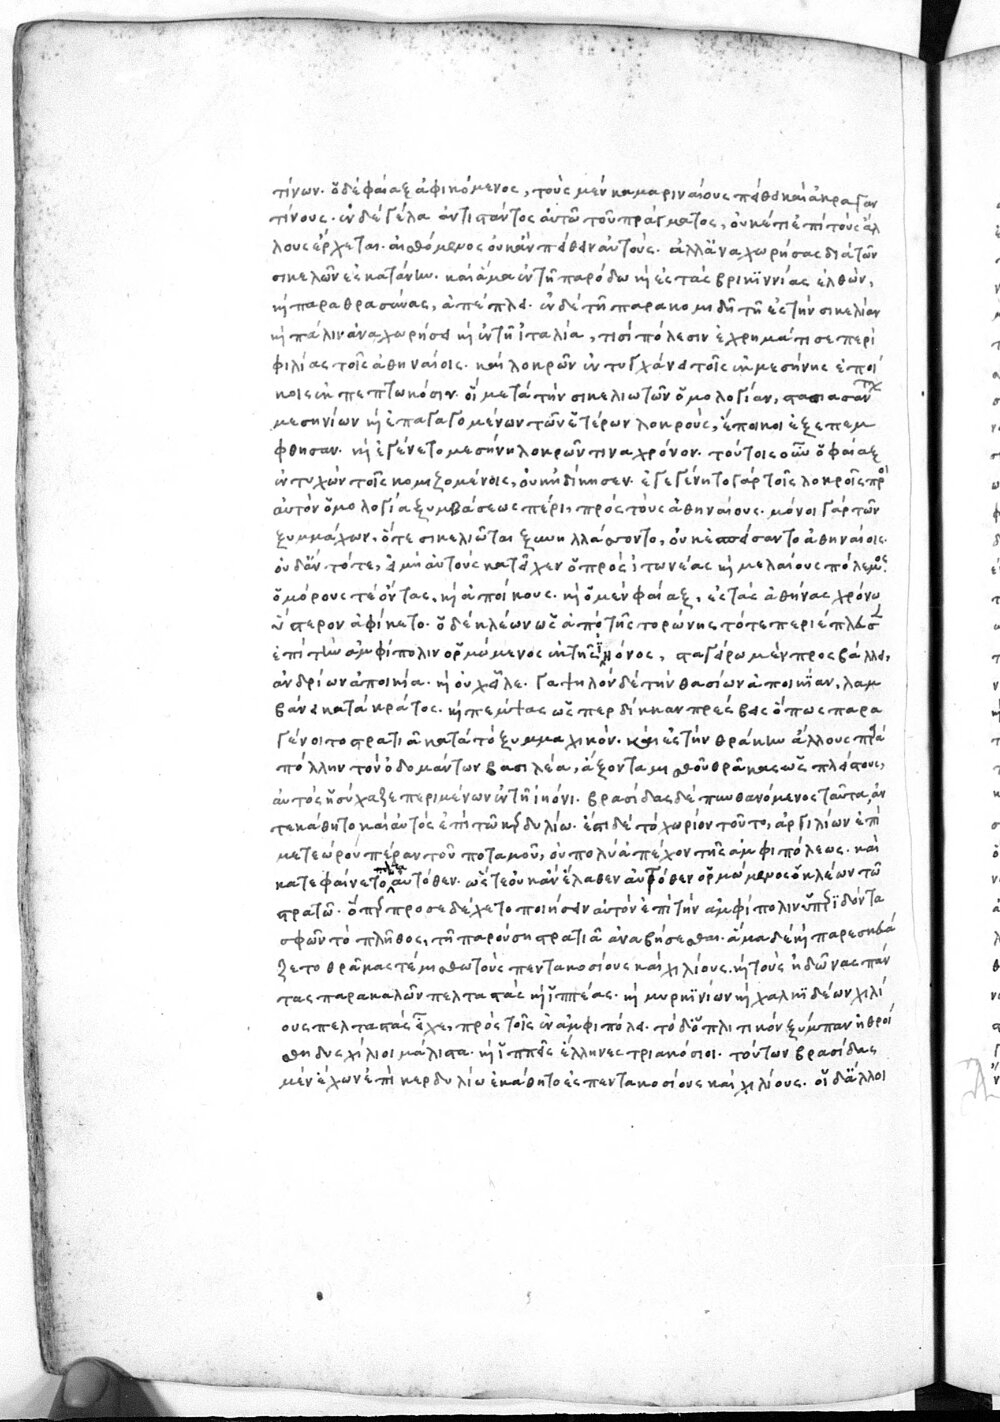 τίνων· ὁ δὲ φαίαξ ἀφικόμενος, τοὺς μὲν καμαριναίους πείθει καὶ ἀκραγαν
τίνους· ἐν δὲ γέλα ἀντιστάντος αὐτῶ τοῦ πράγματος, οὐκέτι ἐπὶ τοὺς ἄλ
λους ἔρχεται· αἰσθόμενος οὐκ ἂν πείθειν αὐτούς· ἀλλ' ἀναχωρήσας διὰ τῶν
σικελῶν ἐς κατάνην· καὶ ἅμα ἐν τῆ παρόδω κỳ ἐς τὰς βρικιννίας ἐλθὼν,
κỳ παραθρασύνας, ἀπέπλει· ἐν δὲ τῆ παρακομιδῆ τῆ ἐς τὴν σικελίαν
κỳ πάλιν ἀναχωρήσει κỳ ἐν τῆ ἰταλία, τισὶ πόλεσιν ἐχρημάτισε περὶ
φιλίας τοῖς ἀθηναίοις· καὶ λοκρῶν ἐντυγχάνει τοῖς ἐκ μεσήνης ἐποί
κοις ἐκπεπτωκόσιν· οἳ μετὰ τὴν σικελιωτῶν ὁμολογίαν, στασιασάντ
μεσηνίων κỳ ἐπαγαγομένων τῶν ἑτέρων λοκροὺς, ἔποικοι ἐξεπέμ
φθησαν· κỳ ἐγένετο μεσήνη λοκρῶν τινα χρόνον· τούτοις οὖν ὁ φαίαξ
ἐντυχὼν τοῖς κομιζομένοις, οὐκ ἠδίκησεν· ἐγεγένητο γὰρ τοῖς λοκροῖς πρὸ
αὐτὸν ὁμολογία ξυμβάσεως πέρι, πρὸς τοὺς ἀθηναίους· μόνοι γὰρ τῶν
ξυμμάχων, ὅτε σικελιῶται ξυνηλλάσσοντο, οὐκ ἐσπείσαντο ἀθηναίοις·
οὐδ' ἂν τότε, εἰ μὴ αὐτοὺς κατεῖχεν ὁ πρὸς ἰτωνέας κỳ μελαίους πόλεμος·
ὁμόρους τε ὄντας, κỳ ἀποίκους· κỳ ὁ μὲν φαίαξ, ἐς τὰς ἀθήνας χρόνω
ὕστερον ἀφίκετο· ὁ δὲ κλέων ὡς ἀπὸ τῆς τορώνης τότε περιέπλευσ
ἐπὶ τὴν ἀμφίπολιν ὁρμώμενος ἐκ τῆς ἠιόνος, σταγείρω μὲν προσβάλλει,
ἀνδρίων ἀποικία· κỳ οὐχ εἷλε· γαψηλὸν δὲ τὴν θασίων ἀποικίαν, λαμ
βάνει κατὰ κράτος· κỳ πέμψας ὡς περδίκκαν πρέσβεις ὅπως παρα
γένοιτο στρατιᾶ κατὰ τὸ ξυμμαχικόν· καὶ ἐς τὴν θράκην ἄλλους παρὰ
πόλλην τὸν ὀδομάντων βασιλέα, ἄξοντα μισθοῦ θρᾶκας ὡς πλείστους,
αὐτὸς ἡσύχαζε περιμένων ἐν τῆ ἠιόνι· βρασίδας δὲ πυνθανόμενος ταῦτα, ἀν
τεκάθητο καὶ αὐτὸς ἐπὶ τῶ κερδυλίω· ἔστι δὲ τὸ χωρίον τοῦτο, ἀργιλίων ἐπὶ
μετεώρου πέραν τοῦ ποταμοῦ, οὐ πολὺ ἀπέχον τῆς ἀμφιπόλεως· καὶ
κατεφαίνετο πάντα αὐτόθεν· ὥστε οὐκ ἂν ἔλαθεν αὐτόθεν ὁρμώμενος ὁ κλέων τῶ
στρατῶ· ὅπερ προσεδέχετο ποιήσειν αὐτὸν ἐπὶ τὴν ἀμφίπολιν ὑπεριδόντα
σφῶν τὸ πλῆθος, τῆ παρούση στρατιᾶ ἀναβήσεσθαι· ἅμα δὲ κỳ παρεσκευά
ζετο θρᾶκάς τε μισθωτοὺς πεντακοσίους καὶ χιλίους· κỳ τοὺς ἠδῶνας πάν
τας παρακαλῶν πελταστὰς κỳ ἱππέας· κỳ μυρκινίων κỳ χαλκιδέων χιλί
ους πελταστὰς εἶχε, πρὸς τοῖς ἐν ἀμφιπόλει· τὸ δ' ὁπλιτικὸν ξύμπαν ἠθροί
σθη δισχίλιοι μάλιστα· κỳ ἱππεῖς ἕλληνες τριακόσιοι· τούτων βρασίδας
μὲν ἔχων ἐπὶ κερδυλίω ἐκάθητο ἐς πεντακοσίους καὶ χιλίους· οἱ δ' ἄλλοι